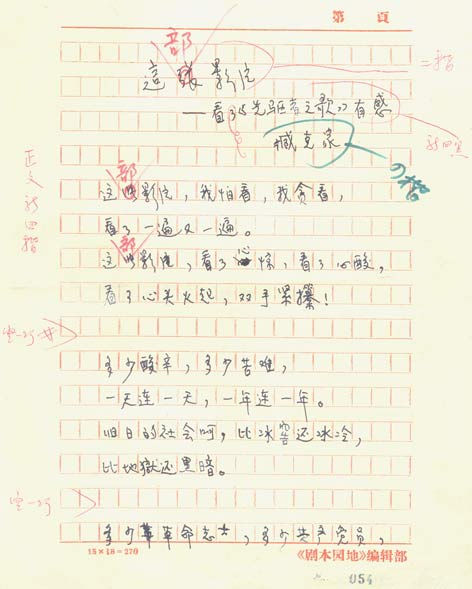 第 頁
部
這張影片
二楷
——看了《先驱者之歌》有感
臧克家
部
正文新四楷
这些影片，我怕看，我贪看，
看了一遍又一遍。
部
这些影片，看了心惊，看了心酸，
看了心头火起，双手紧攥！
空一行
多少酸辛，多少苦难，
一天连一天，一年连一年。
旧日的社会啊，比冰窖还冰冷，
比地狱还黑暗。
空一行
多少革命志士，多少共产党员，
15×18=270
《剧本园地》编辑部
054